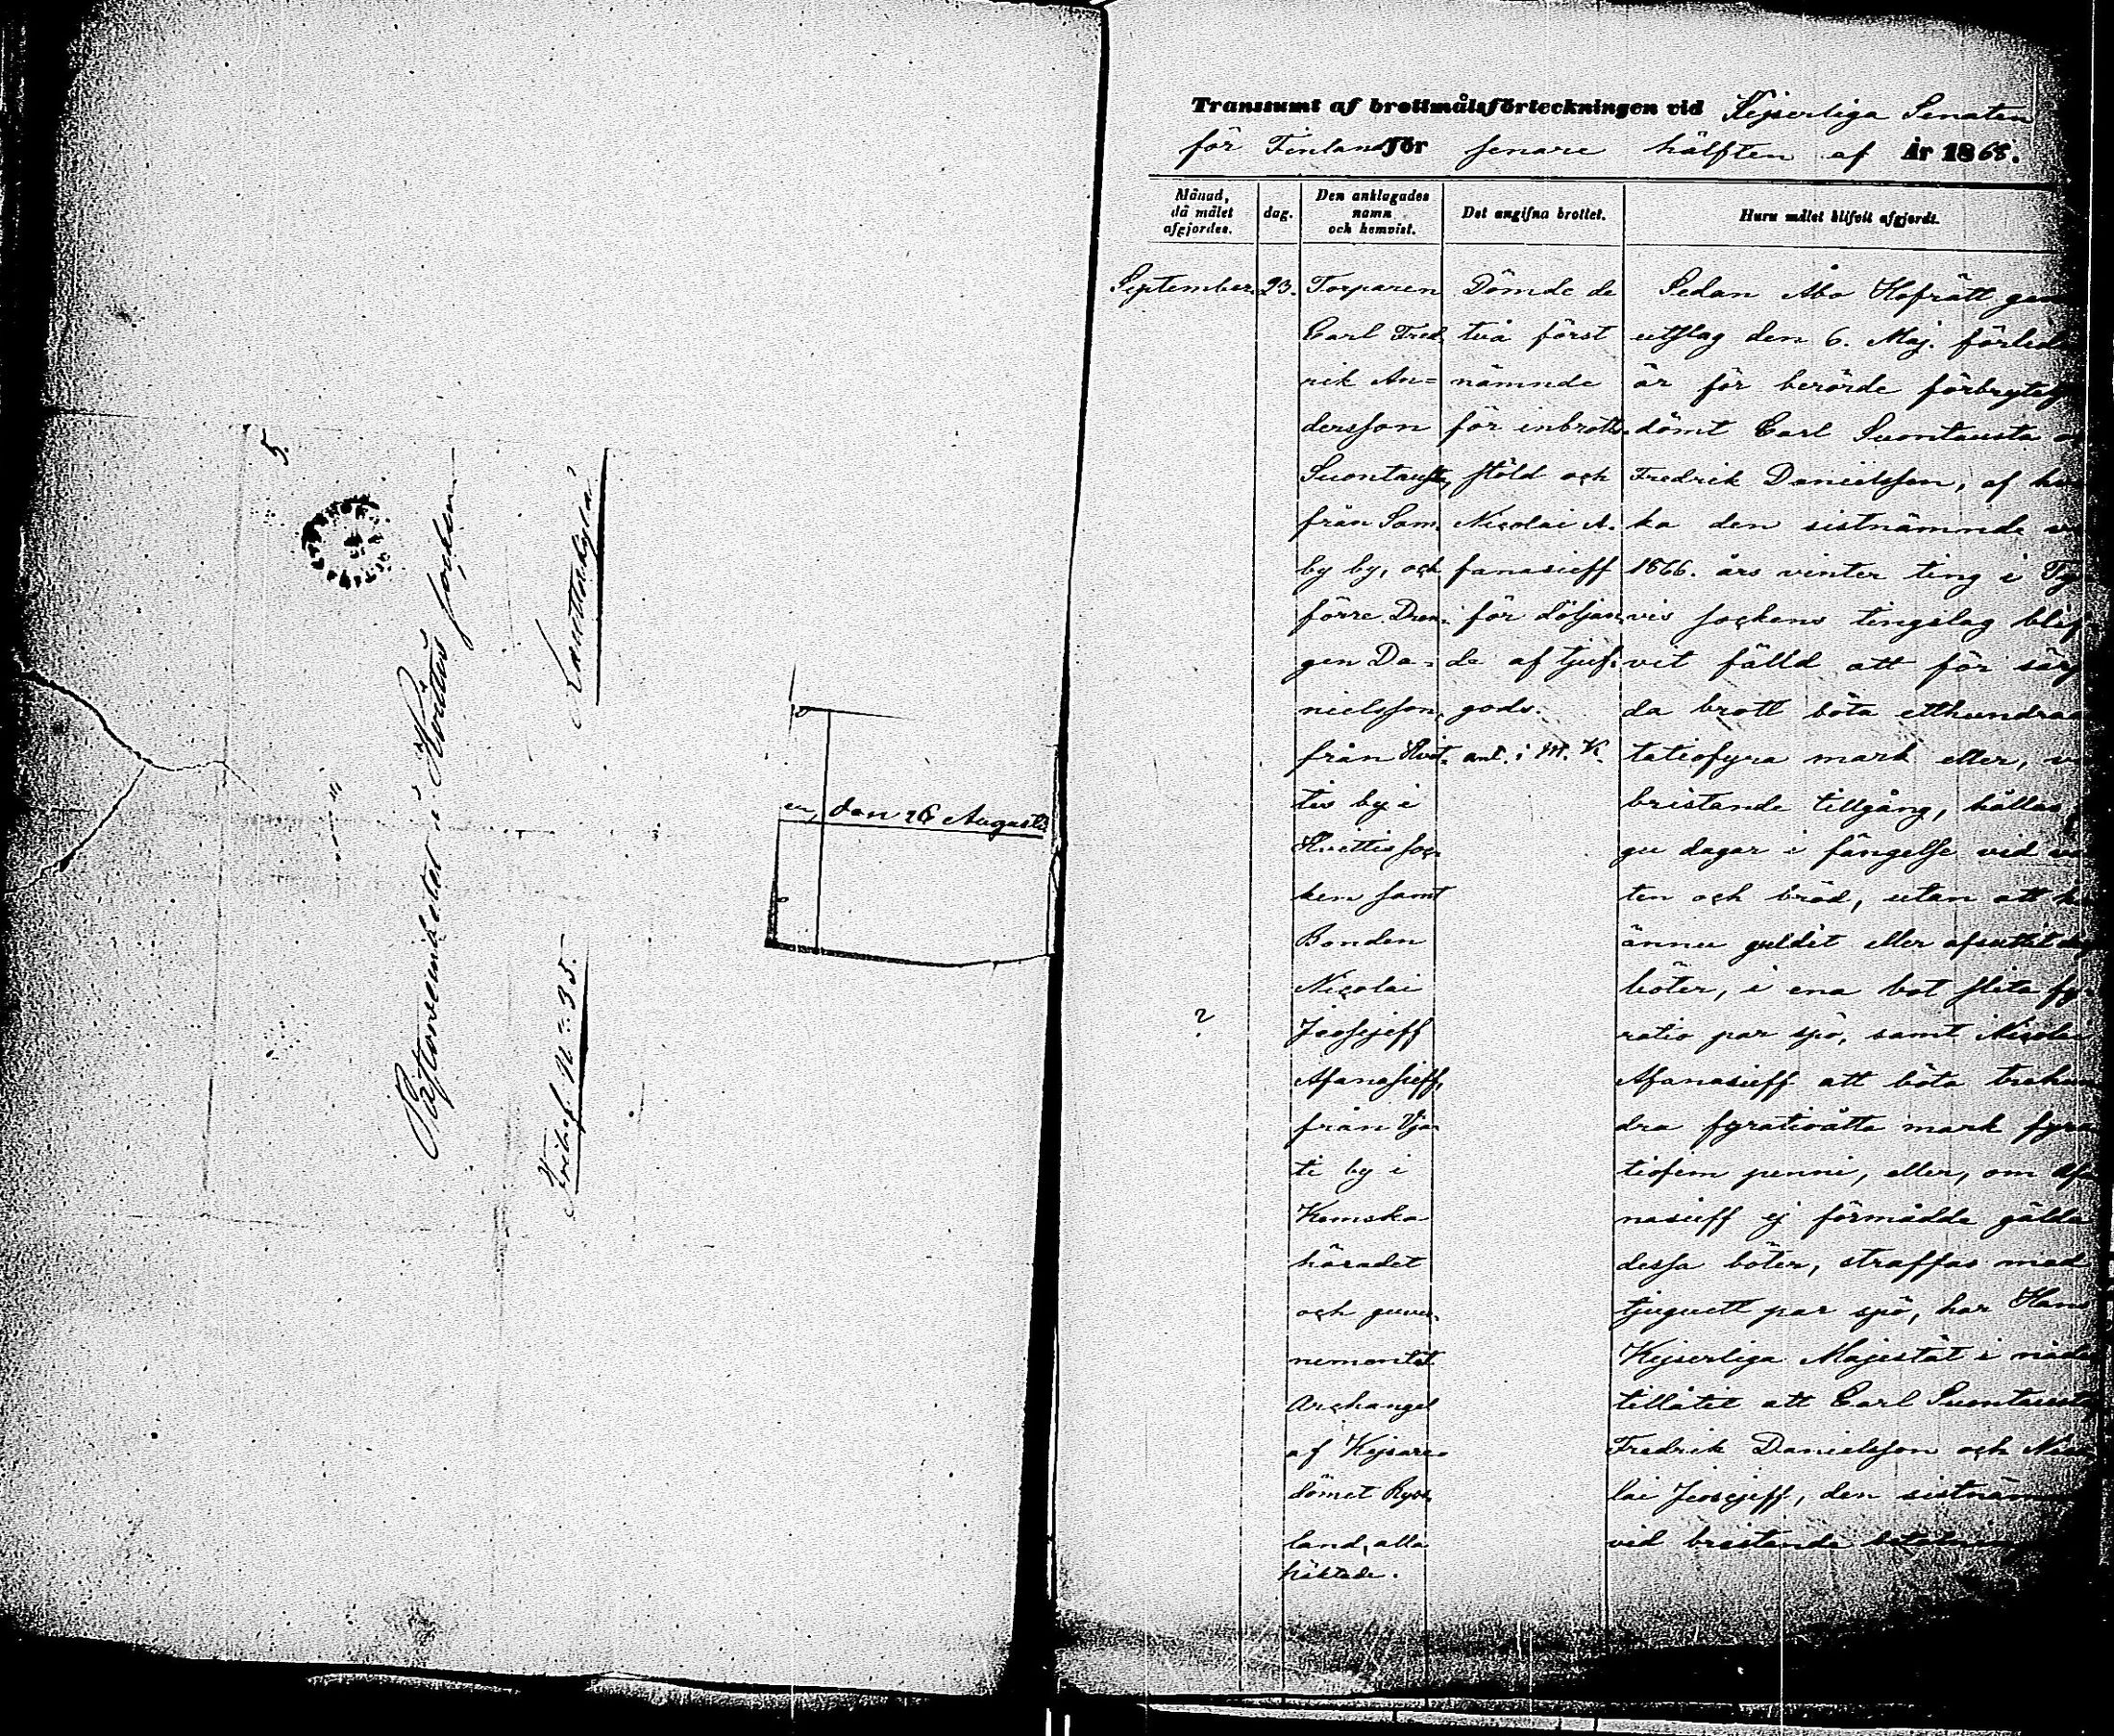 5.
Pastorsembetet i Hvittis socken.
Lauttakylä
Kribref. No. 35.
den 26 Augusti
Transsumt af brottmålsförteckningen vid Kejserliga Senaten
för Finland för senare hälften af År 1868.
Månad, då målet afgjordes.
dag.
Den anklagades namn och hemvist.
Det angifna brottet.
Huru målet blifvit afgjordt.
September 23.
Torparen
Carl Fred
rik An=
dersson
Suontausta,
från Sam
by by, och
förre Dren
gen Da-
nielsson,
från Hvit-
tis by i
Hvittis soc
ken samt
Bonden
Nicolai
?
Afanasieff,
från
ti by i
Kemska
häradet
och guver
nementet
Archangel
af Kejsare
dömet Ryss
land, alla
häktade.
Dömde de
två först
nämnde
för inbrotts
stöld och
Nicolai A.
fanasieff
för döljan
de af tjuf-
gods.
Sedan Åbo Hofrätt
utslag den 6. Maj.
år för berörde
dömt Carl Suontausta
Fredrik Danielsson, af
ka den sistnämnde
1866. års vinter ting i
vis sockens tingslag
vit fälld att för
da brott böta
tatiofyra mark eller,
bristande tillgång, hållas
gu dagar i fängelse vid
ten och bröd, utan att
ännu guldit eller
böter, i ena bot slita
ratio par spö, samt Nicolai
Afanasieff att böta
dra fyratioåtta mark
tiofem penni, eller, om
nasieff ej förmådde gälda
dessa böter, straffas med
tjuguett par spö, har Hans
Kejserliga Majestät i
tillåtit att Carl Suontausta
Fredrik Danielsson och
lai den
vid bristande